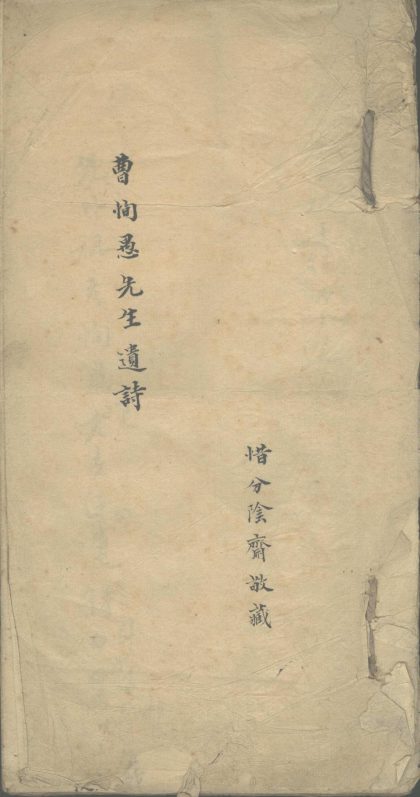 曹恂愚先生遺詩
惜分陰齋敬藏